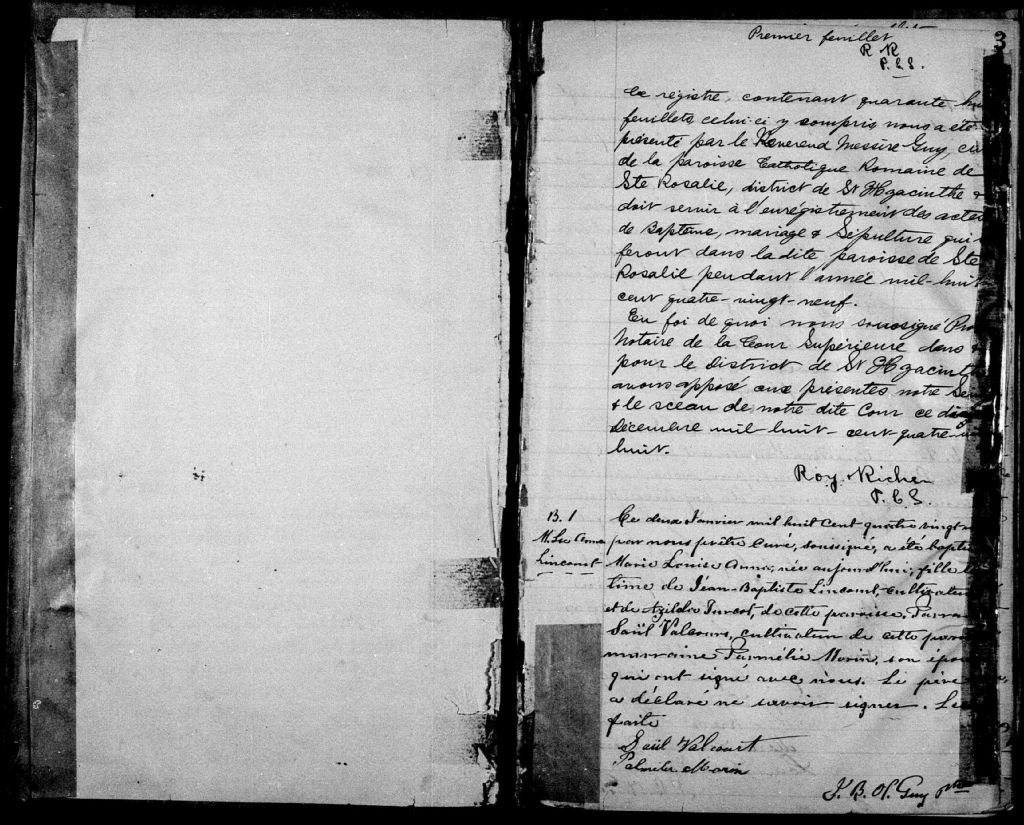 Premier feuillet
3
R R
P.C.S.
Ce registre, contenant quarante-hu
feuillets, celui-ci y compris, nous a été
présenté par le Révérend Messire Guy, cu
de la paroisse Catholique Romaine de
Ste Rosalie, district de St Hyacinthe &
doit servir à l'enrégistrement des actes
de Baptême, mariage & Sépulture qui s
feront dans la dite paroisse de Ste
Rosalie pendant l'année mil-huit
cent quatre-vingt-neuf.
En foi de quoi nous soussigné Pro
notaire de la Cour Supérieure dans &
pour le District de St Hyacinthe
avons apposé aux présentes notre
& le sceau de notre dite Cour ce
Décembre mil-huit-cent-quatre-
huit.
Roy Richer
P.C.S.
B. 1
M. Lse Anna
Lincourt
Ce deux Janvier mil huit cent quatre vingt n
par nous prêtre curé, soussigné, a été bapti
Marie Louise Anna, née aujourd'hui, fille lé
time de Jean-Baptiste Lincourt, cultivateur
et de Azilda Turcot, de cette paroisse. Parra
Saül Valcours, cultivateur de cette paro
marraine Parmélie Morin, son épou
qui ont signé avec nous. Le père
a déclaré ne savoir signer. Le
faite
Saül Valcourt
Palmelie Morin
J. B. O. Guy Ptre